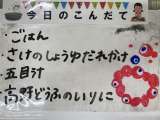 今日のこんだて
・ごはん
・さけのしょうゆだれかけ
・五目汁
・高野どうふのいりに